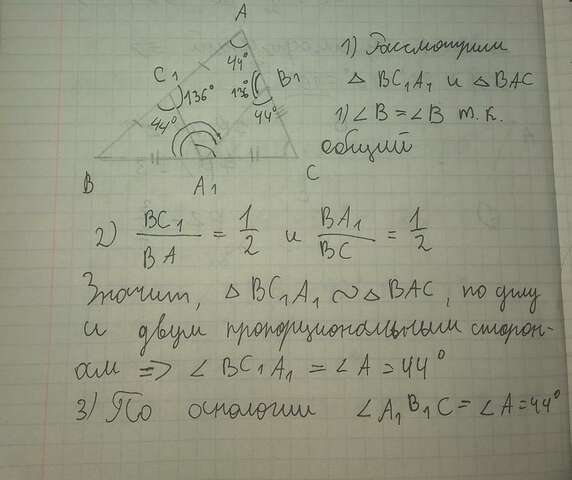 A
44°
C1
136°
B1
136°
44°
44°
B
A1
C
1) Рассмотрим
△ BC1A1 и △BAC
1) ∠B = ∠B т.к.
общий
2) BC1/BA = 1/2 и BA1/BC = 1/2
Значит, △ BC1A1 ∾ △ BAC, по
и двум пропорциональным сторон-
ам => ∠ BC1A1 = ∠A = 44°
3) По аналогии ∠A1B1C = ∠A = 44°